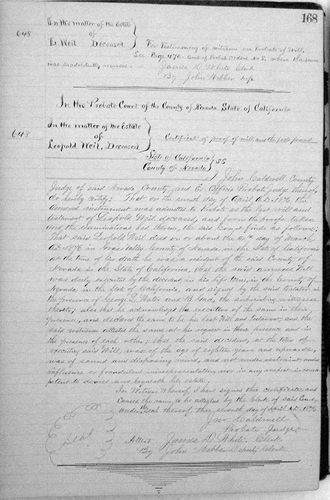 168
In the matter of the Estate
648 of
L. Weil, Deceased
For Testimony of witness on Probate of Will,
See Page 170
James D. White Clerk
By John Webber
In the Probate Court of the County of Nevada State of California
In the matter of the Estate
648 of
Leopold Weil, Deceased
Certificate of proof of will and the facts found
State of California
County of Nevada } SS
I, John Caldwell County
Judge of said Nevada County, and Ex Officio Probate Judge thereof
do hereby certify: That on the seventh day of April A.D. 1876, the
annexed instrument was admitted to Probate, as the last will and
testament of Leopold Weil deceased, and from the proofs taken
and the examination had therein, the said Court finds as follows:
That said Leopold Weil died on or about the day of March
A.D. 1876 in Grass Valley County of Nevada, in the State of California
that at the time of his death he was a resident of the said County of
Nevada in the State of California, that the said annexed Will
was duly executed by the decedent in his life time, in the County of
Nevada in the State of California, and signed by the said testator in
the presence of George and the subscribing witnesses
thereto; also that he acknowledged the execution of the same in their
presence, and declared the same to be his last Will and Testament and the
said witnesses attested the same at his request in their presence and in
the presence of each other; that the said decedent, at the time of
executing said Will, was of the age of eighteen years and upwards,
was of sound and disposing mind, and not under restraint undue
influence or fraudulent misrepresentation, nor in any respect incom-
petent to devise and bequeath his estate.
In Witness Whereof, I have signed this certificate, and
caused the same to be attested by the Clerk of said Court
under the seal thereof, this seventh day of April A.D. 1876
Seal
Jno. Caldwell
Probate Judge
Attest James D. White, Clerk
By John Webber Deputy Clerk